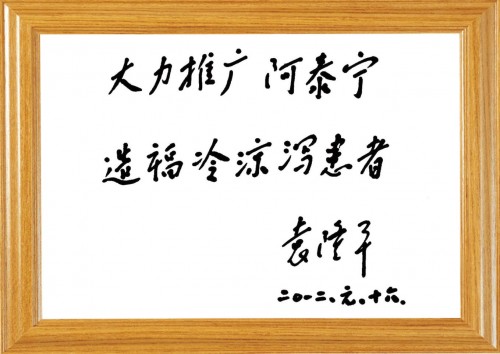 大力推广阿泰宁
造福冷凉泻患者
袁隆平
二〇一二.元.十六.